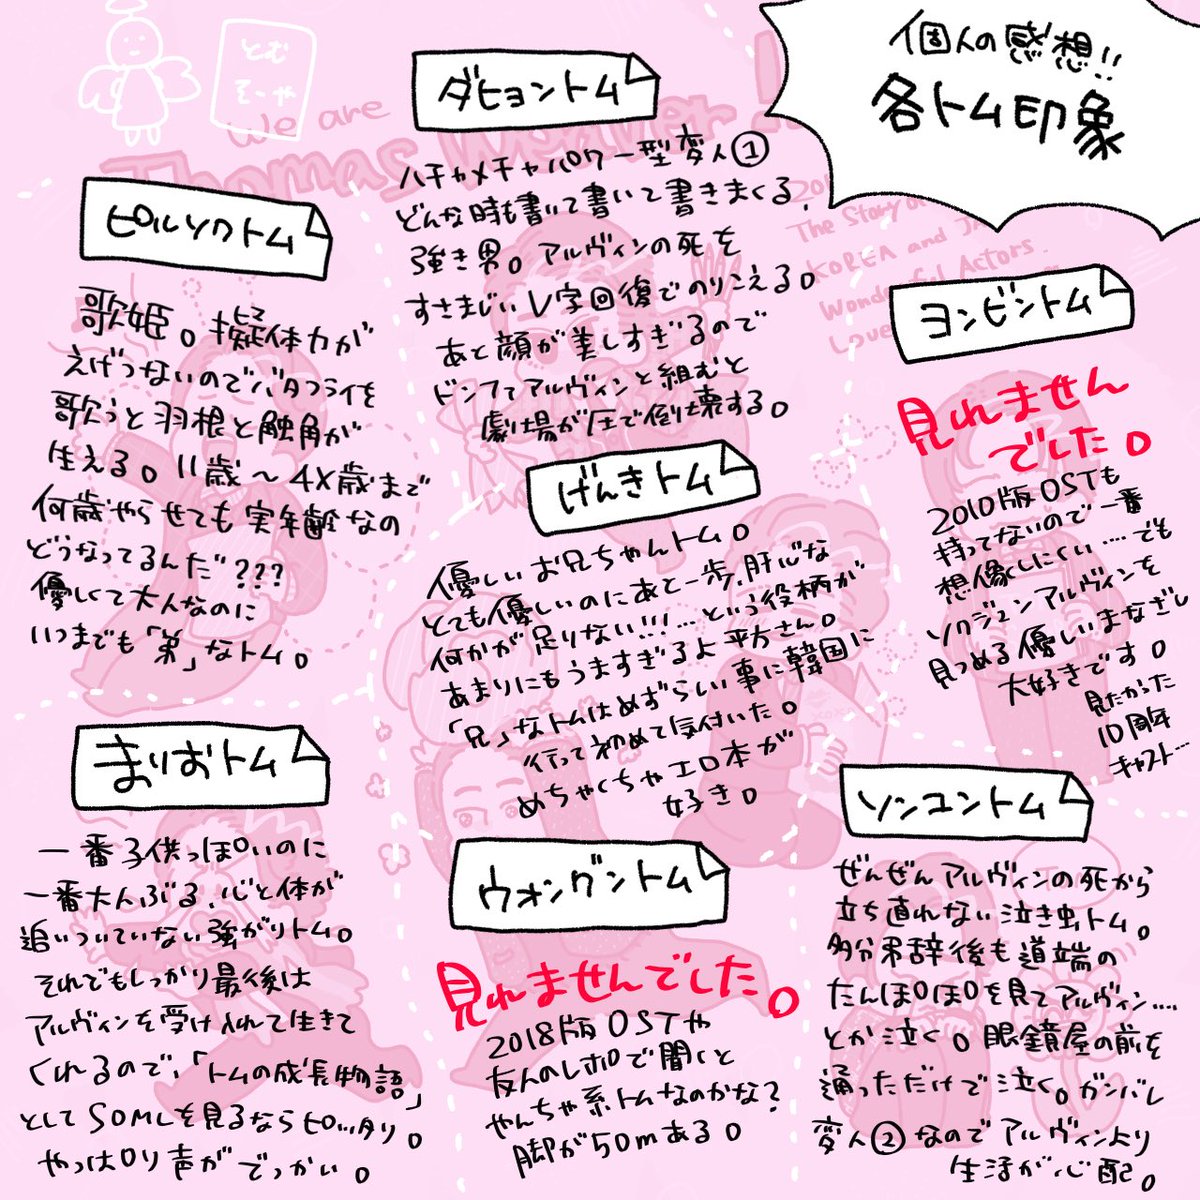 個人の感想!!
各トム印象
とむ
そーや
We are
Thomas Weaver
The Story of
KOREA and
Wonderful Actors
Love
ダヒョントム
ハチャメチャパワー型変人①
どんな時も書いて書いて書きまくる、
強き男。アルヴィンの死を
すさまじいV字回復でのりこえる。
あと顔が美しすぎるので
ドンファアルヴィンと組むと
劇場が圧で倒壊する。
ピルソクトム
歌姫。擬体力が
えげつないのでバタフライを
歌うと羽根と触角が
生える。11歳〜4X歳まで
何歳やらせても実年齢なの
どうなってるんだ???
優しくて大人なのに
いつまでも「弟」なトム。
ヨンビントム
見れません
でした。
2010版OSTも
持ってないので一番
想像しにくい……でも
ソクジュンアルヴィンを
見つめる優しいまなざし
大好きです。
見たかった
10周年
キャスト…
げんきトム
優しいお兄ちゃんトム。
とても優しいのにあと一歩、肝心な
何かが足りない!!!…という役柄が
あまりにもうますぎるよ平方さん。
「兄」なトムはめずらしい事に韓国に
行って初めて気付いた。
めちゃくちゃエロ本が
好き。
まりおトム
一番子供っぽいのに
一番大人ぶる、心と体が
追いついていない強がりトム。
それでもしっかり最後は
アルヴィンを受け入れて生きて
くれるので、「トムの成長物語」
としてSOMLを見るならピッタリ。
やっぱり声がでっかい。
ウォングントム
見れませんでした。
2018版OSTや
友人のレポで聞くと
やんちゃ系トムなのかな?
脚が50mある。
ソンユントム
ぜんぜんアルヴィンの死から
立ち直れない泣き虫トム。
多分弔辞後も道端の
たんぽぽを見てアルヴィン……
とか泣く。眼鏡屋の前を
通っただけで泣く。ガンバレ
変人②なのでアルヴィンより
生活が心配。